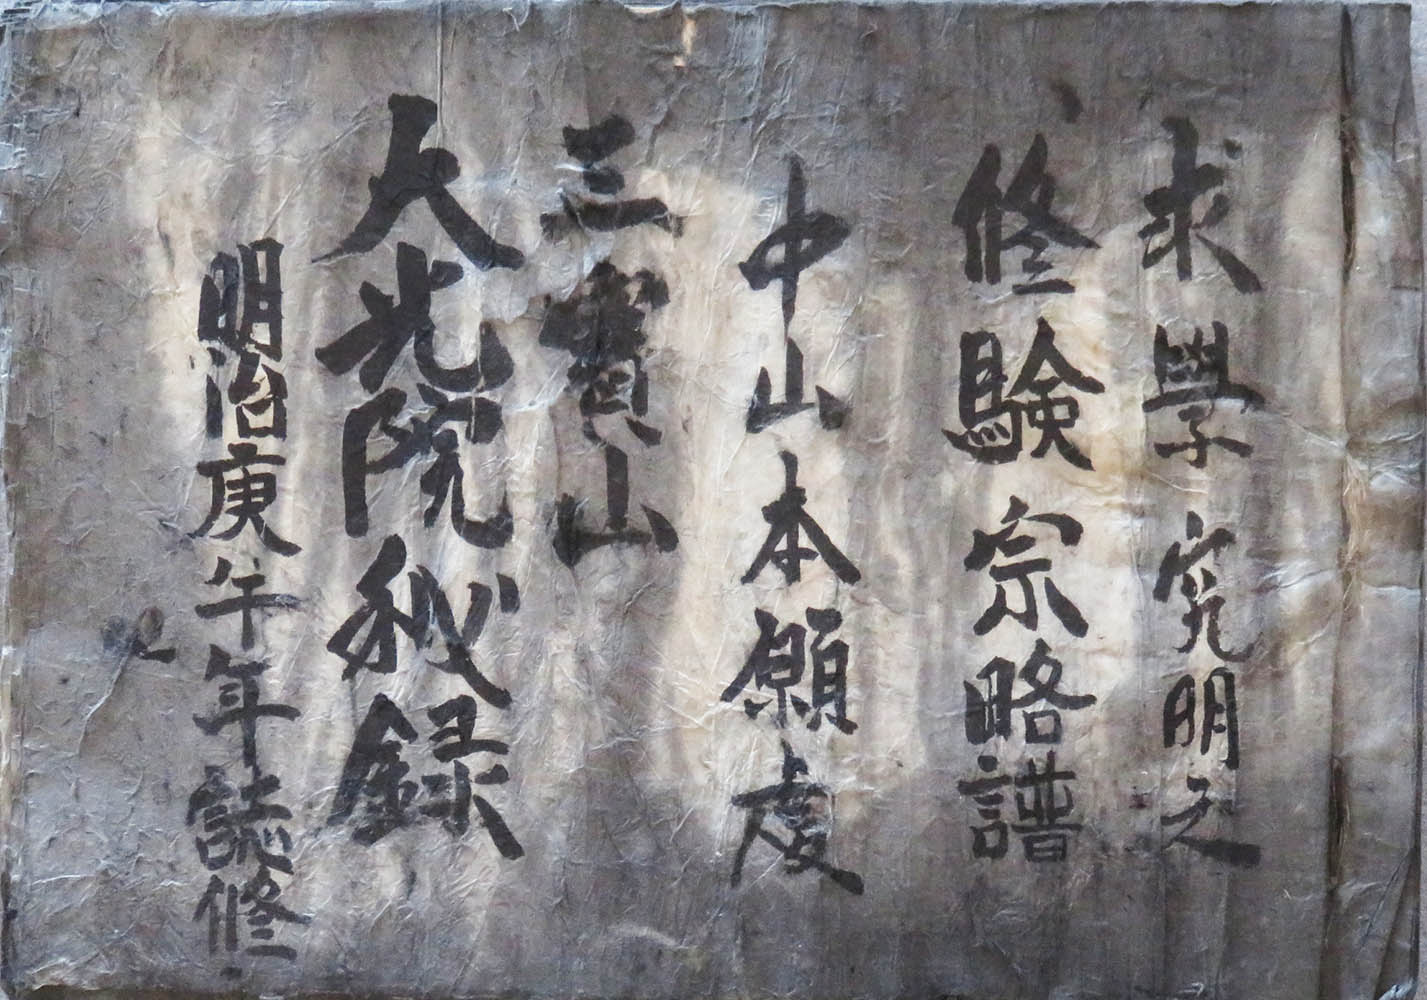 求學究明之
修験宗略譜
中山本願
三寶山
大光院秘録
明治庚午年誌修